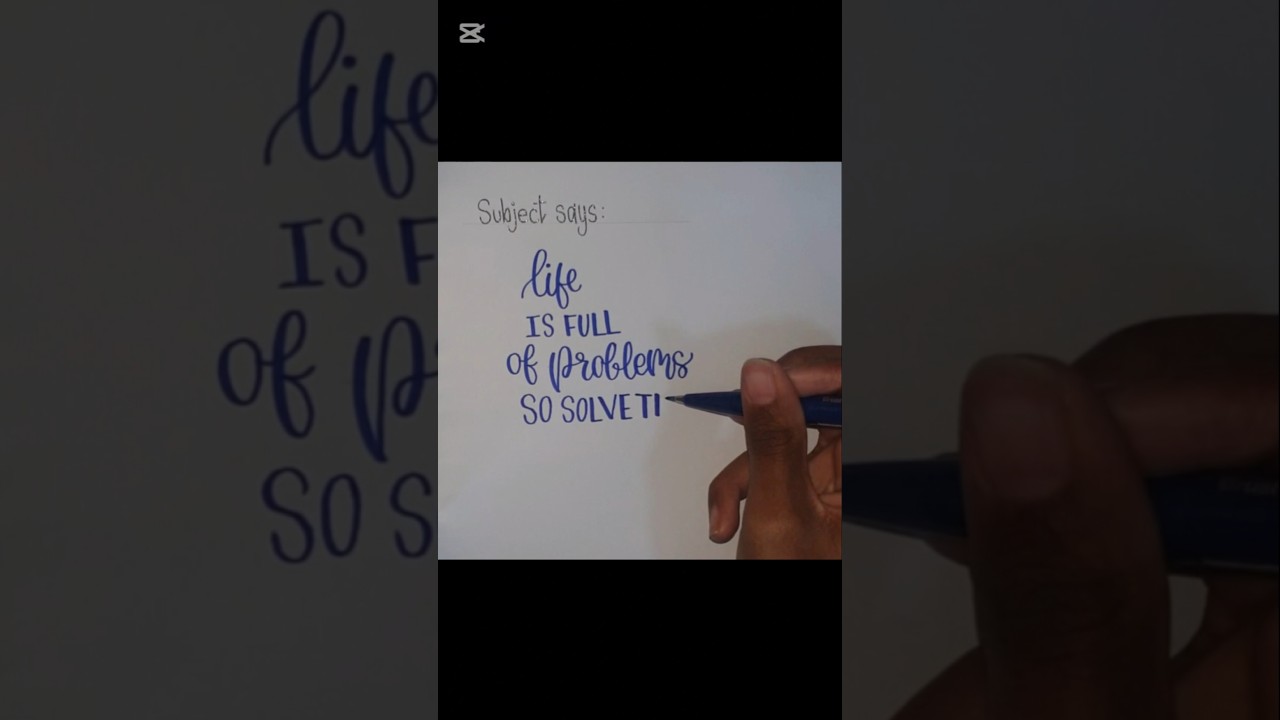 Subject says:
life
IS FULL
of problems
SO SOLVE TI